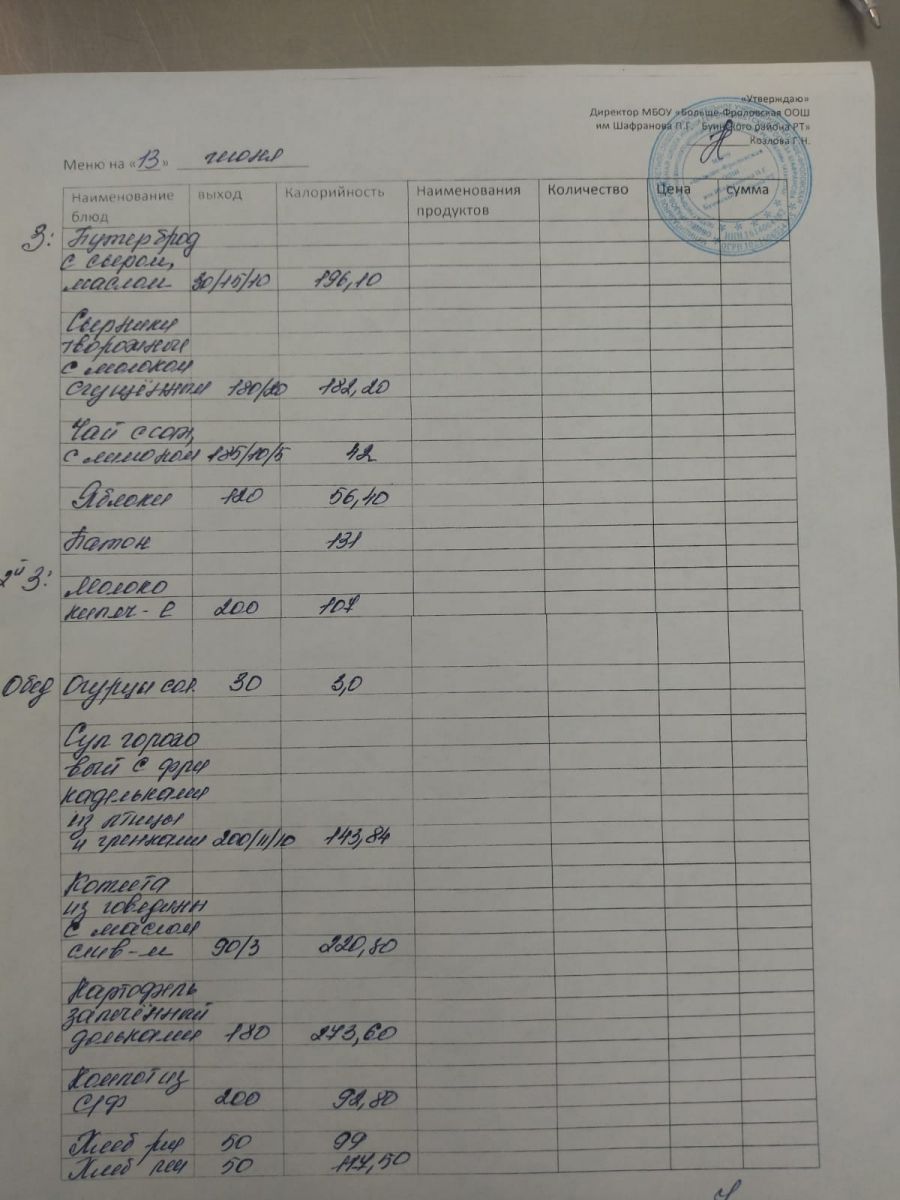 «Утверждаю»
Директор МБОУ «Больше-Фроловская ООШ
им Шафранова П.Г. Буинского района РТ»
Козлова Г.Н.
Меню на «13» июня
Наименование блюд выход Калорийность Наименования продуктов Количество Цена сумма
З: Бутерброд
с сыром,
маслом 30/15/10 196,10
Сырники
творожные
с молоком
сгущённым 180/20 182,20
Чай с сах,
с лимоном 185/10/5 42
Яблоки 120 56,40
Батон 131
2й З: Молоко
кипяч-е 200 107
Обед Огурцы сол. 30 3,0
Суп горохо
вый с фри
кадельками
из птицы
и гренками 200/11/10 143,84
Котлета
из говядины
с маслом
слив-м 90/3 220,80
Картофель
запечённый
дольками 180 273,60
Компот из
С/Ф 200 92,80
Хлеб рж 50 99
Хлеб пш 50 117,50